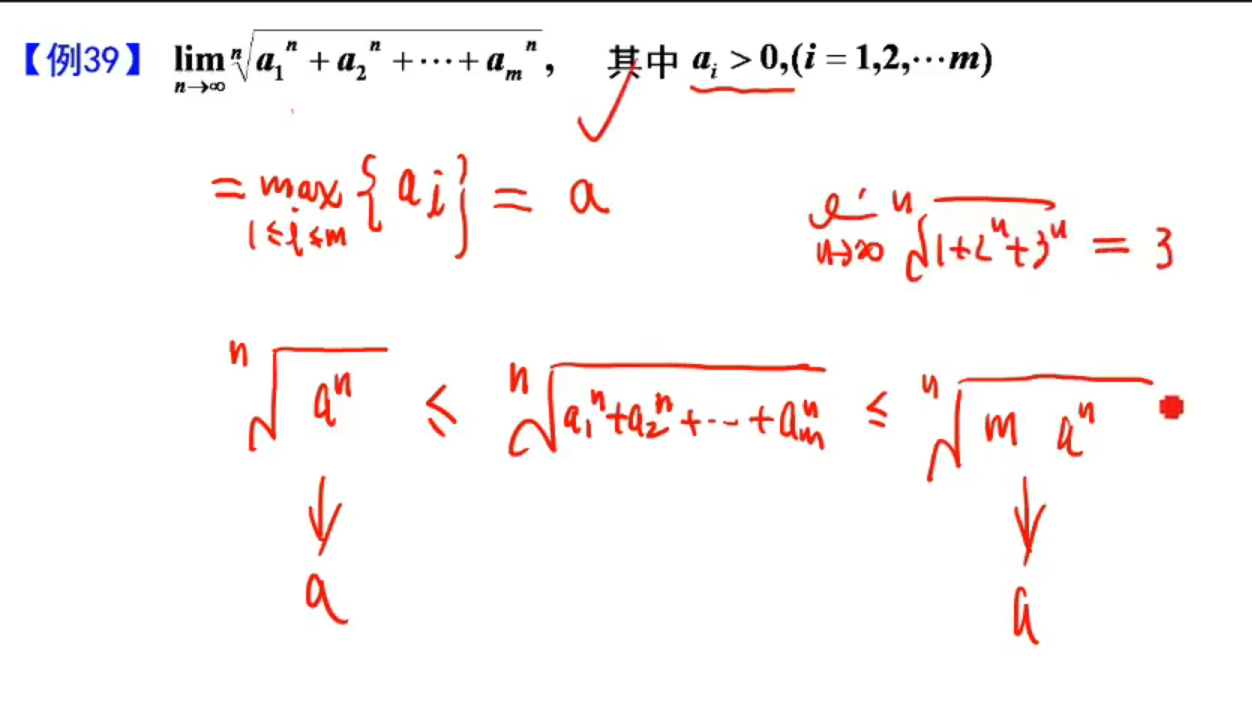 【例39】 lim_{n→∞} ⁿ√(a₁ⁿ + a₂ⁿ + ··· + aₘⁿ), 其中 aᵢ > 0,(i = 1,2,···m)
= max_{1≤i≤m} {ai} = a
lim_{n→∞} ⁿ√(1+2ⁿ+3ⁿ) = 3
ⁿ√(aⁿ) ≤ ⁿ√(a₁ⁿ+a₂ⁿ+···+aₘⁿ) ≤ ⁿ√(m aⁿ)
↓ ↓
a a